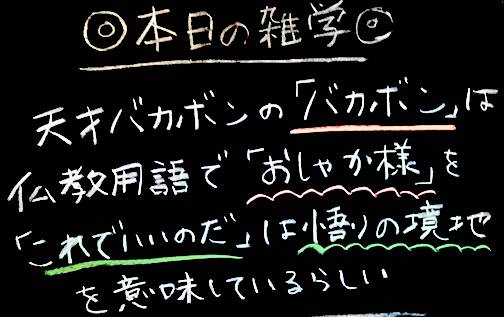 ◎本日の雑学◎
天才バカボンの「バカボン」は
仏教用語で「おしゃか様」を
「これでいいのだ」は悟りの境地
を意味しているらしい